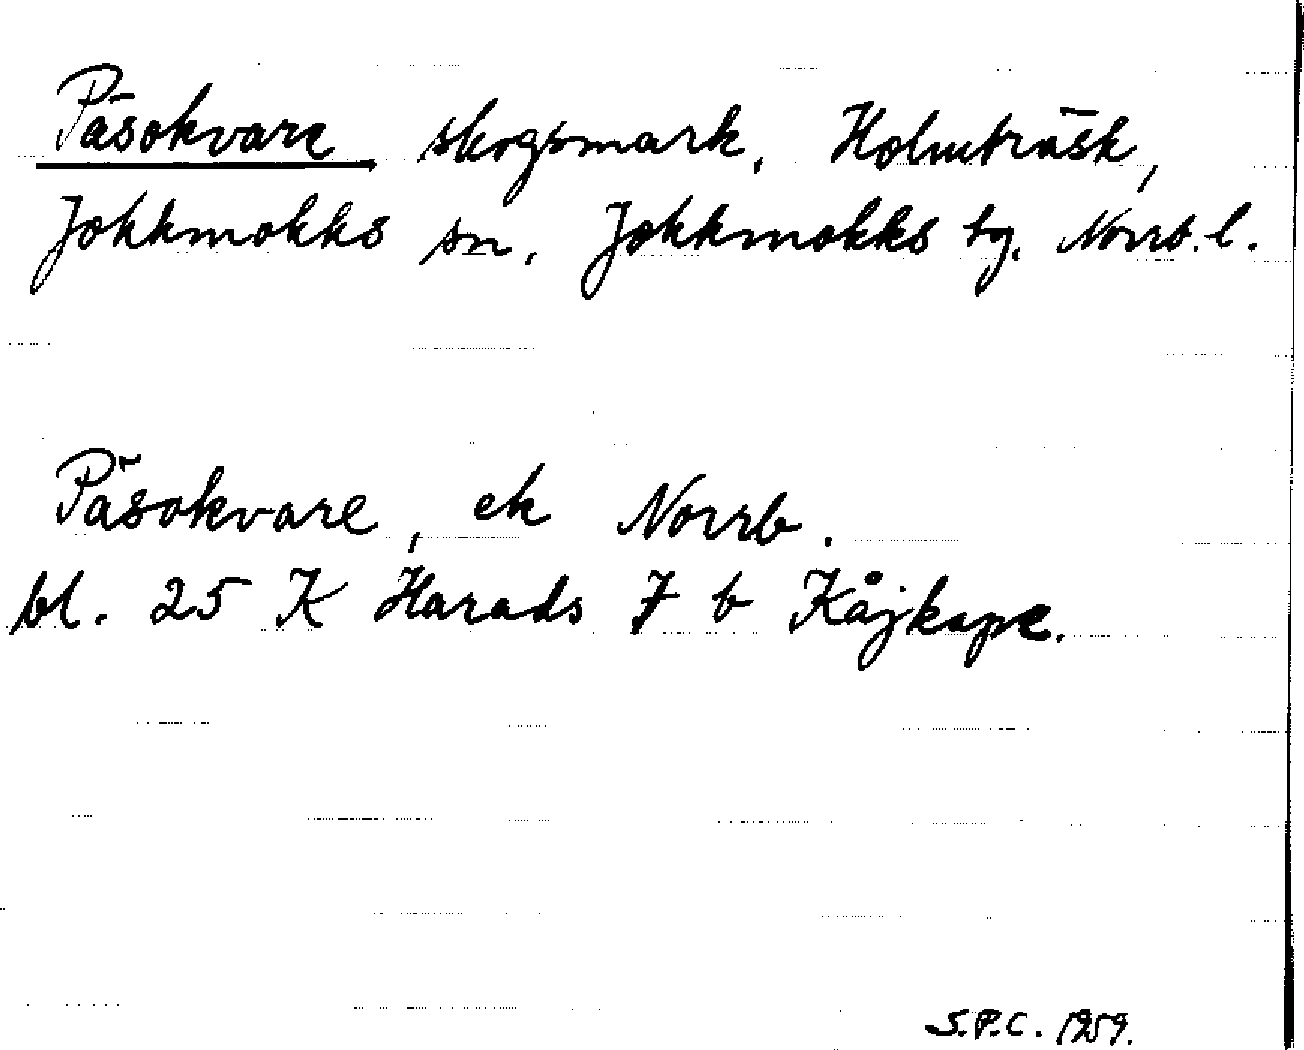 Päsokvare skogsmark, Holmträsk,
Jokkmokks sn, Jokkmokks tg. Norrb. l.
Päsokvare, ek Norrb.
bl. 25 K Harads 7 b Kåjkape.
S.P.C. 1959.